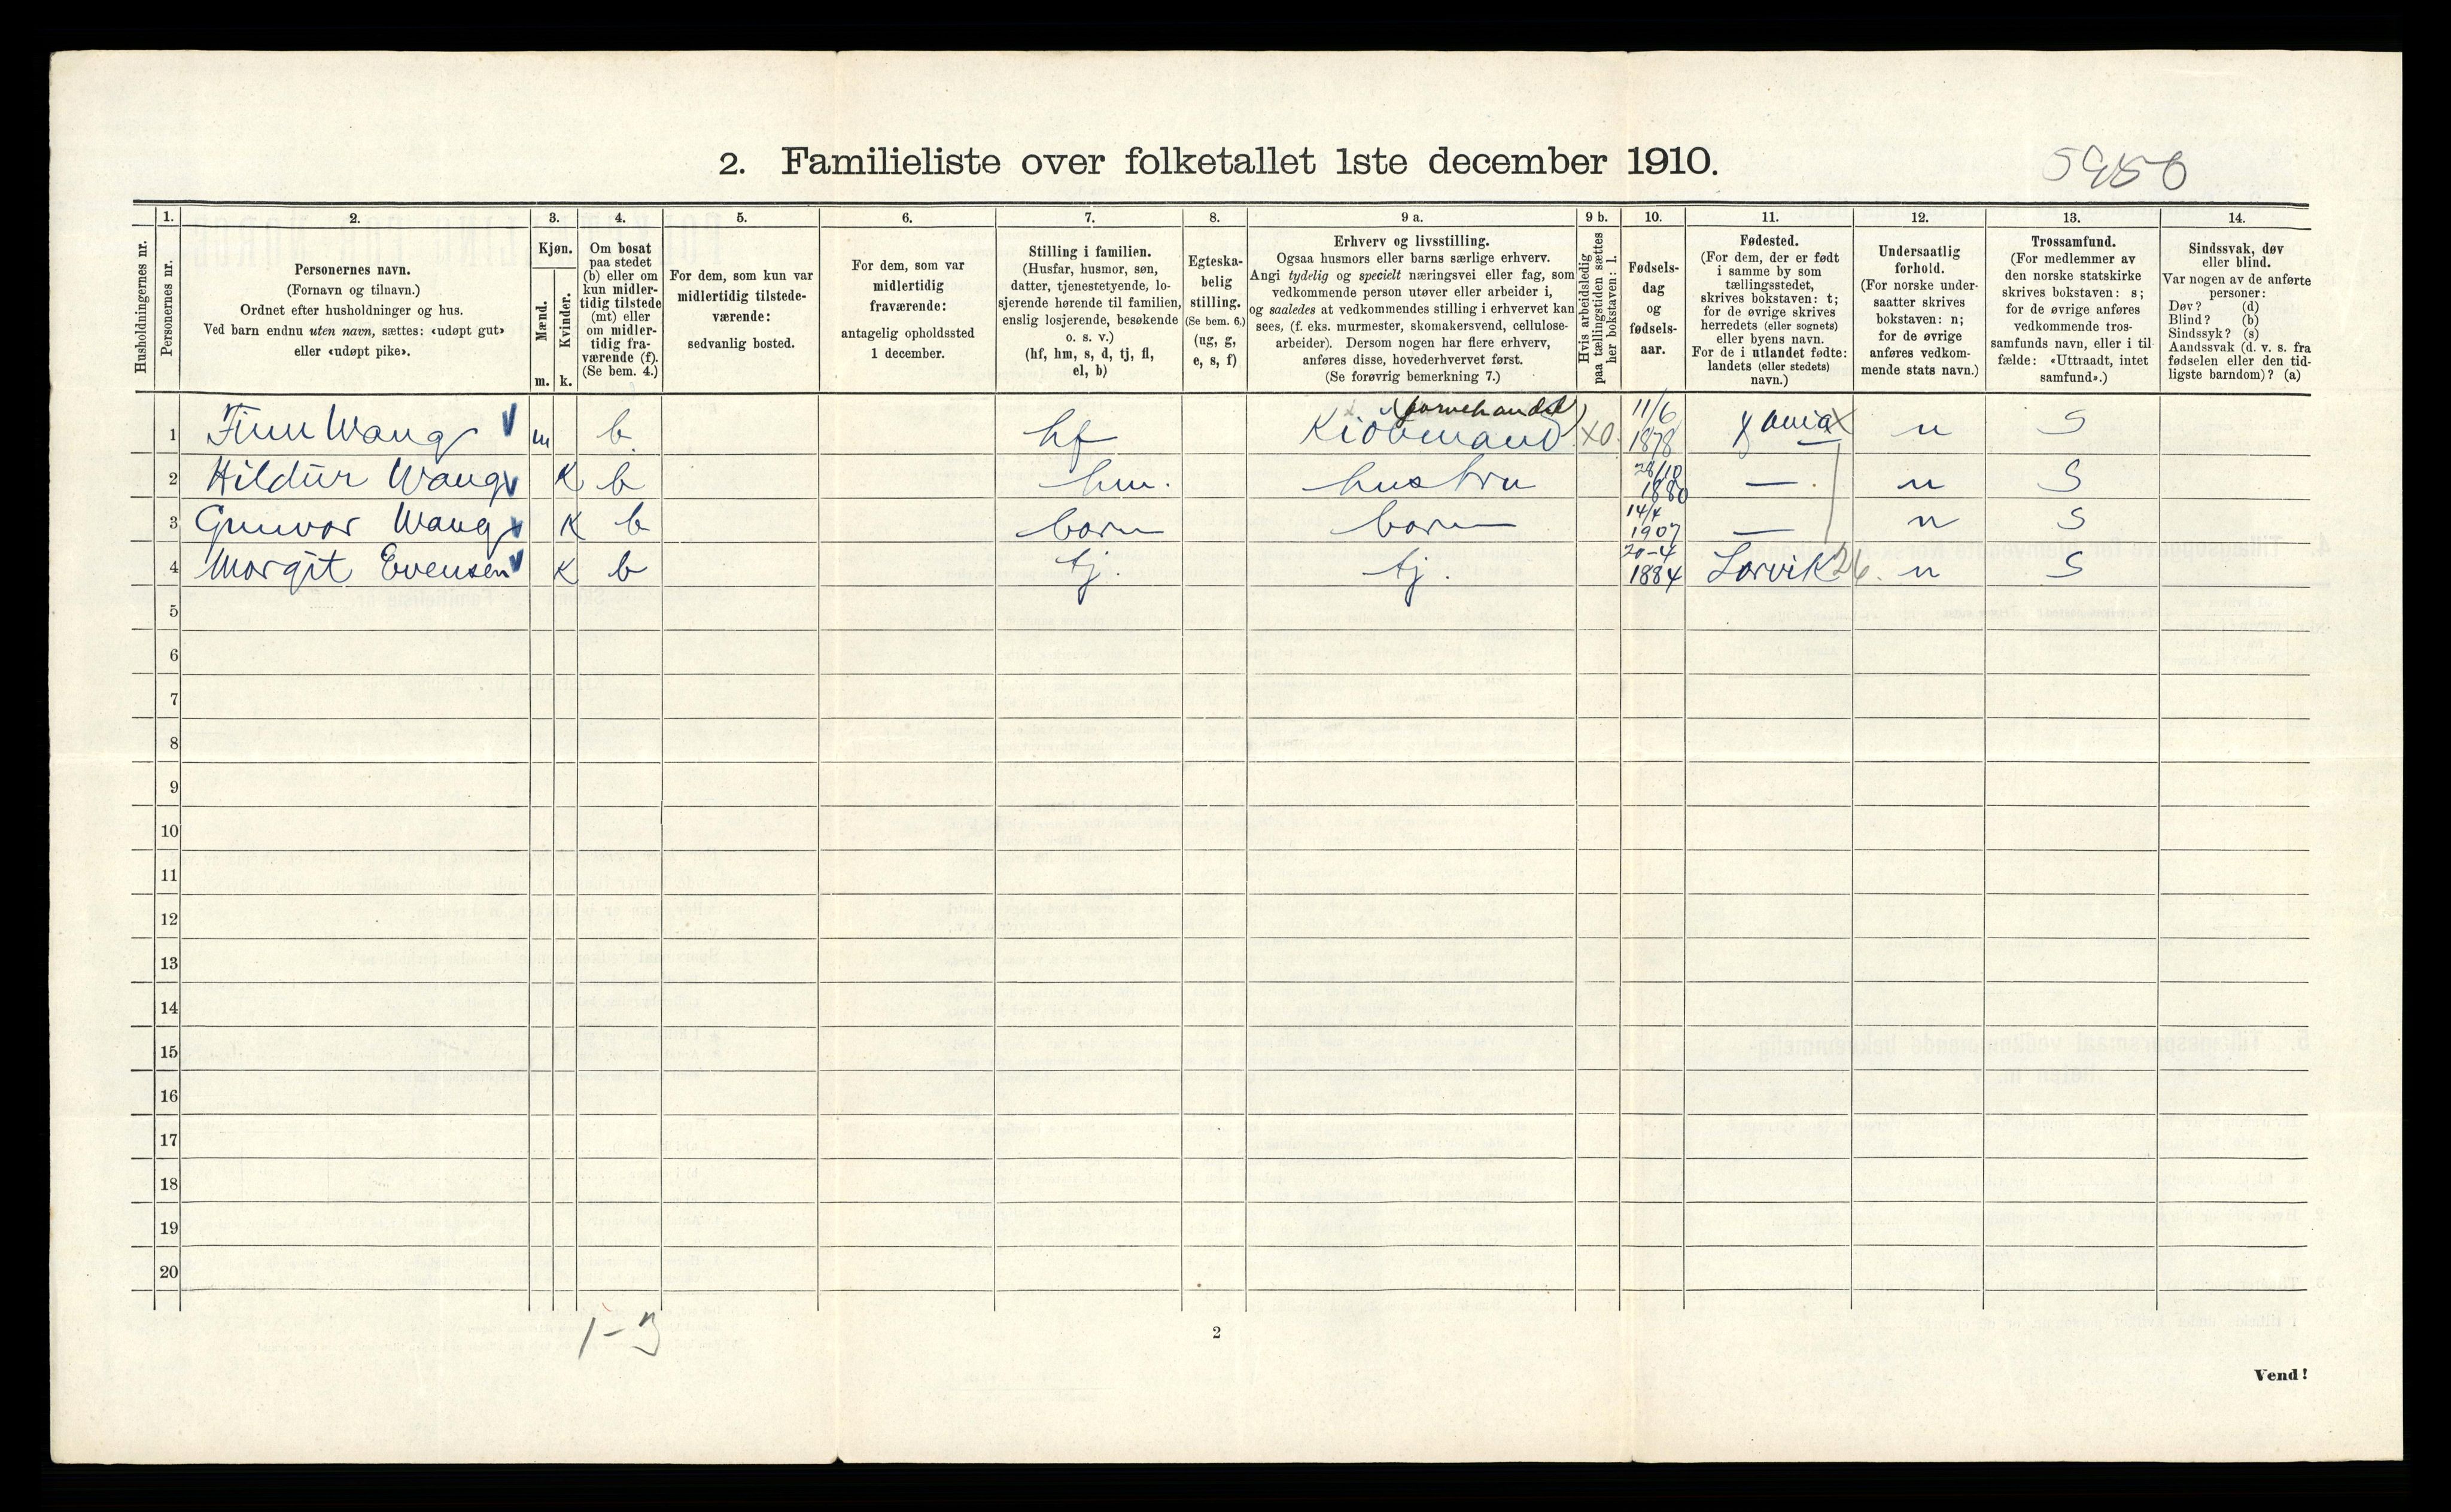 2. Familieliste over folketallet 1ste december 1910.
1. 2. 3. 4. 5. 6. 7. 8. 9 a. 9 b. 10. 11. 12. 13. 14.
Husholdningernes nr.
Personernes nr.
Personernes navn.
(Fornavn og tilnavn.)
Ordnet efter husholdninger og hus.
Ved barn endnu uten navn, sættes: «udøpt gut»
eller «udøpt pike».
Kjøn.
Mænd.
Kvinder.
m. k.
Om bosat
paa stedet
(b) eller om
kun midler-
tidig tilstede
(mt) eller
om midler-
tidig fra-
værende (f).
(Se bem. 4.)
For dem, som kun var
midlertidig tilstede-
værende:
sedvanlig bosted.
For dem, som var
midlertidig
fraværende:
antagelig opholdssted
1 december.
Stilling i familien.
(Husfar, husmor, søn,
datter, tjenestetyende, lo-
sjerende hørende til familien,
enslig losjerende, besøkende
o. s. v.)
(hf, hm, s, d, tj, fl,
el, b)
Egteska-
belig
stilling.
(Se bem. 6.)
(ug, g,
e, s, f)
Erhverv og livsstilling.
Ogsaa husmors eller barns særlige erhverv.
Angi tydelig og specielt næringsvei eller fag, som
vedkommende person utøver eller arbeider i,
og saaledes at vedkommendes stilling i erhvervet kan
sees, (f. eks. murmester, skomakersvend, cellulose-
arbeider). Dersom nogen har flere erhverv,
anføres disse, hovederhvervet først.
(Se forøvrig bemerkning 7.)
Hvis arbeidsledig
paa tællingstiden sættes
her bokstaven: l.
Fødsels-
dag
og
fødsels-
aar.
Fødested.
(For dem, der er født
i samme by som
tællingsstedet,
skrives bokstaven: t;
for de øvrige skrives
herredets (eller sognets)
eller byens navn.
For de i utlandet fødte:
landets (eller stedets)
navn.)
Undersaatlig
forhold.
(For norske under-
saatter skrives
bokstaven: n;
for de øvrige
anføres vedkom-
mende stats navn.)
Trossamfund.
(For medlemmer av
den norske statskirke
skrives bokstaven: s;
for de øvrige anføres
vedkommende tros-
samfunds navn, eller i til-
fælde: «Uttraadt, intet
samfund».)
Sindssvak, døv
eller blind.
Var nogen av de anførte
personer:
Døv? (d)
Blind? (b)
Sindssyk? (s)
Aandssvak (d. v. s. fra
fødselen eller den tid-
ligste barndom)? (a)
1 Finn Wang m b. hf Kiöbmand (farvehandel) X0. 11/6 1878 Xania X n S
2 Hildur Wang K b hm. hustru 28/10 1880 — n S
3 Gunvor Wang K b barn barn 14/4 1907 — n S
4 Margit Evensen K b tj. tj. 20-4 1884 Larvik 26. n S
5
6
7
8
9
10
11
12
13
14
15
16
17
18
19
20
1-3
2
Vend!